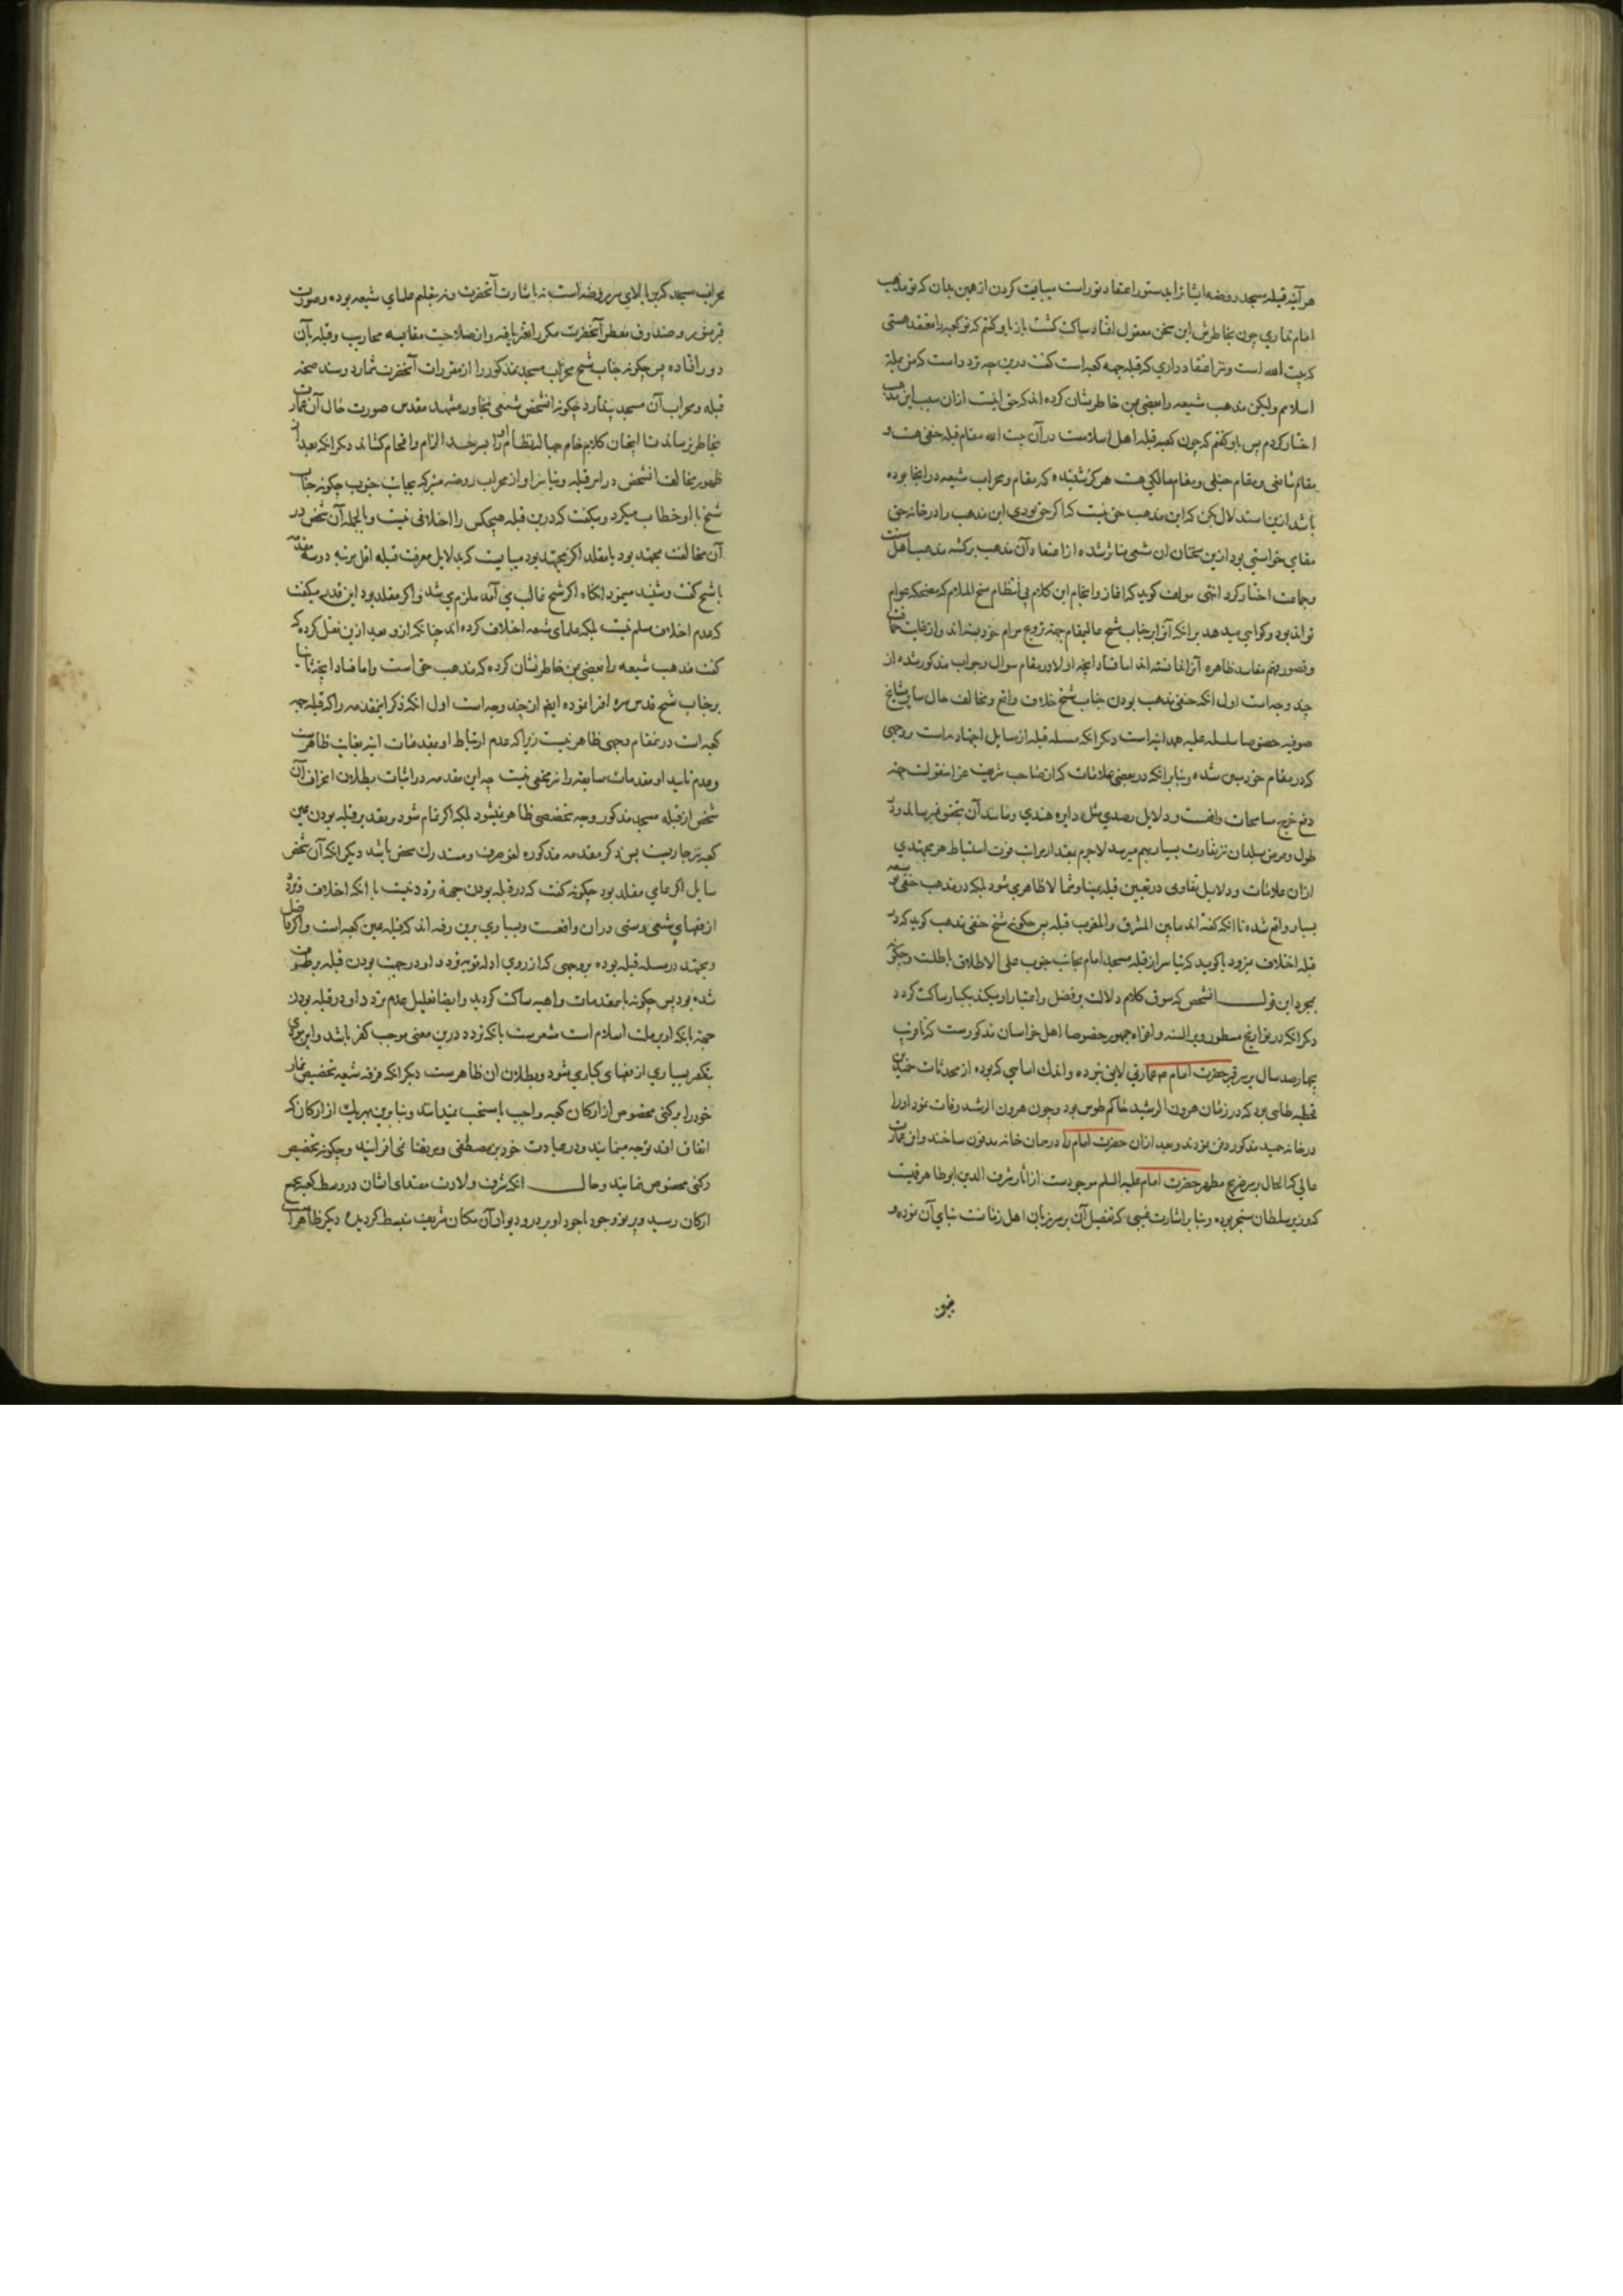 هر آینه قبله مسجد روضه ایشان را بدستور اعتقاد تو راست میبایست کردن از همین بدان که تو مذهب
امام نداری چون بخاطرش این سخن معقول افتاد ساکت گشت باز باو گفتم که تو کعبه را معتقد هستی
که بیت الله است و ترا اعتقاد داری که قبله جهه کعبه است گفت درین چه تردد است که من بملة
اسلامم ولیکن مذهب شیعه را بعضی بمن خاطرنشان کرده اند که حق اینست ازان سبب این مذهب
اختیار کردم پس باو گفتم که چون کعبه قبله اهل اسلامست در آن بیت الله مقام قبله حنفی هست و
مقام شافعی و مقام حنبلی و مقام مالکی هست هرگز شنیده که مقام و محراب شیعه در آنجا بوده
باشد ازینجا استدلال بکن که این مذهب حق نیست که اگر حق بودی این مذهب را در خانه حق
مقامی خواستی بود ازین سخنان آن شیعی متاثر شده از اعتقاد آن مذهب برگشته مذهب اهل سنت
و جماعت اختیار کرد انتهی مولف گوید که آغاز و انجام این کلام بی انتظام سخ الملام که مضحکه عوام
تواند بود گواهی میدهد برانکه آنرا بر جناب شیخ عالیمقام جهة ترویج مرام خود بسته اند و از غایت حماقت
و قصور فهم مفاسد ظاهره آنرا ندانسته اند اما فساد آنچه اولا در مقام سوال و جواب مذکور شده از
چند وجه است اول انکه حنفی مذهب بودن جناب شیخ خلاف واقع و مخالف حال سایر مشایخ
صوفیه خصوصا سلسله علیه همدانیه است دیگر انکه مسئله قبله از مسایل اجتهادیه است بر وجهی
که در مقام خود مبین شده و بنابر انکه در بعضی علامات که از صاحب شریعت غرا منقولست جهة
دفع حرج مسامحات واقعست و دلایل رصدی مثل دایره هندی و مانند آن بتحقق نمیرساند و در
طول و عرض بلدان نیز تفاوت بسیار بهم میرسد لاجرم بقدر مراتب قوت استنباط هر مجتهدی
ازان علامات و دلایل تفاوتی در تعیین قبله یمینا و شمالا ظاهر می شود بلکه در مذهب حنفی توسعه
بسیار واقع شده تا انکه گفته اند ما بین المشرق والمغرب قبله پس چگونه شیخ حنفی مذهب گوید که در
قبله اختلاف نبود یا گوید که تیاسر از قبله مسجد امام بجانب جنوب علی الاطلاق باطلست و چگونه
بمجرد این قول انشخص که سوق کلام دلالت بر فضل و اعتبار او میکند یکبار ساکت گردد
دیگر انکه در تواریخ مسطور و بر السنه و افواه جمهور خصوصا اهل خراسان مذکورست که تا قریب
بچهارصد سال بر سر قبر حضرت امام عم عمارتی لایق نبوده و اندک اساسی که بوده از محدثات حمید بن
قحطبه طائی بود که در زمان هرون الرشید حاکم طوس بود و چون هرون الرشید وفات نمود او را
در خانه حمید مذکور دفن نمودند و بعد ازان حضرت امام را در همان خانه مدفون ساختند و این عمارت
عالی که الحال بر سر ضریح مطهر حضرت امام علیه السلم موجودست از آثار شرف الدین ابو طاهر قمیست
که وزیر سلطان سنجر بوده و بنابر اشارت غیبی که تفصیل آن بر سر زبان اهل زمانست بنای آن نموده و
محراب مسجد که در بالای سر روضه است نه باشارت آنحضرت و نه بتعلیم علمای شیعه بوده و صورت
قبر منور و صندوق معطر آنحضرت مکرر تغیر یافته و از صلاحیت مقایسه محاریب و قبله بآن
دور افتاده پس چگونه جناب شیخ محراب مسجد مذکور را از مقررات آنحضرت شمارد و سند صحة
قبله و محراب آن مسجد پندارد و چگونه انشخص شیعی مجاور مشهد مقدس صورت حال آن عمارت
بخاطر نرساند تا اینچنان کلام خام حبا لانتظام او را بسر حد الزام و افحام کشاند دیگر انکه بعد از
ظهور مخالفت انشخص در امر قبله و تیاسر او از محراب روضه متبرکه بجانب جنوب چگونه جناب
شیخ با او خطاب میکرد و میگفت که درین قبله هیچکس را اختلافی نیست و بالجمله آن شخص در
آن مخالفت مجتهد بود یا مقلد اگر مجتهد بود میبایست که بدلایل معرفت قبله اقل مرتبه دو سه مقدمه
با شیخ گفت و شنید مینمود انگاه اگر شیخ غالب می آمد ملزم می شد و اگر مقلد بود این قدر میگفت
که عدم اختلاف مسلم نیست بلکه علمای شیعه اختلاف کرده اند چنانکه ازو بعد ازین نقل کرده که
گفت مذهب شیعه را بعضی بمن خاطرنشان کرده که مذهب حق است و اما فساد آنچه ثانیا
بر جناب شیخ قدس سره افترا نموده ایضا از چند وجه است اول انکه ذکر اینمقدمه را که قبله جهة
کعبه است درینمقام وجهی ظاهر نیست زیرا که عدم ارتباط او بمقدمات اتیه بغایت ظاهرست
و عدم تایید او مقدمات سابقه را نیز مخفی نیست چه این مقدمه در اثبات بطلان انحراف آن
شخص از قبله مسجد مذکور وجه تخصصی ظاهر نمیشود بلکه اگر تمام شود بر تقدیر قبله بودن عین
کعبه نیز جاریست پس ذکر مقدمه مذکوره لغو صرف و مستدرک محض باشد دیگر انکه آن شخص
سایل اگر عامی مقلد بود چگونه گفت که در قبله بودن جهة تردد نیست با انکه اختلاف فریقین
از فقهای شیعی و سنی دران واقعست و بسیاری برین رفته اند که قبله عین کعبه است و اگر فاضل
و مجتهد در مسئله قبله بوده بر وجهی که از روی ادله قویه تردد او در جهت بودن قبله بر طرف
شده بود پس چگونه باینمقدمات واهیه ساکت گردید و ایضا تعلیل عدم تردد او در قبله بودن
جهة بانکه او بر ملت اسلام است مشعرست بانکه تردد درین معنی موجب کفر باشد و این مودی
بتکفیر بسیاری از فقهای کبار می شود و بطلان آن ظاهرست دیگر انکه فرقه شیعه تخصیص نماز
خود را برکنی مخصوص از ارکان کعبه واجب یا مستحب نمیدانند و بنابرین بهر یک از ارکان که
اتفاق افتد توجه مینمایند و در عبادت خود بر مصطفی و مرتضا نمی افزایند و چگونه تخصیص
رکنی مخصوص نمایند و حال انکه شرف ولادت مقتدای ایشان در وسط کعبه بجمیع
ارکان رسیده و پرتو وجود باجود او بر در و دیوار آن مکان شریف منبسط گردیده دیگر ظاهر است